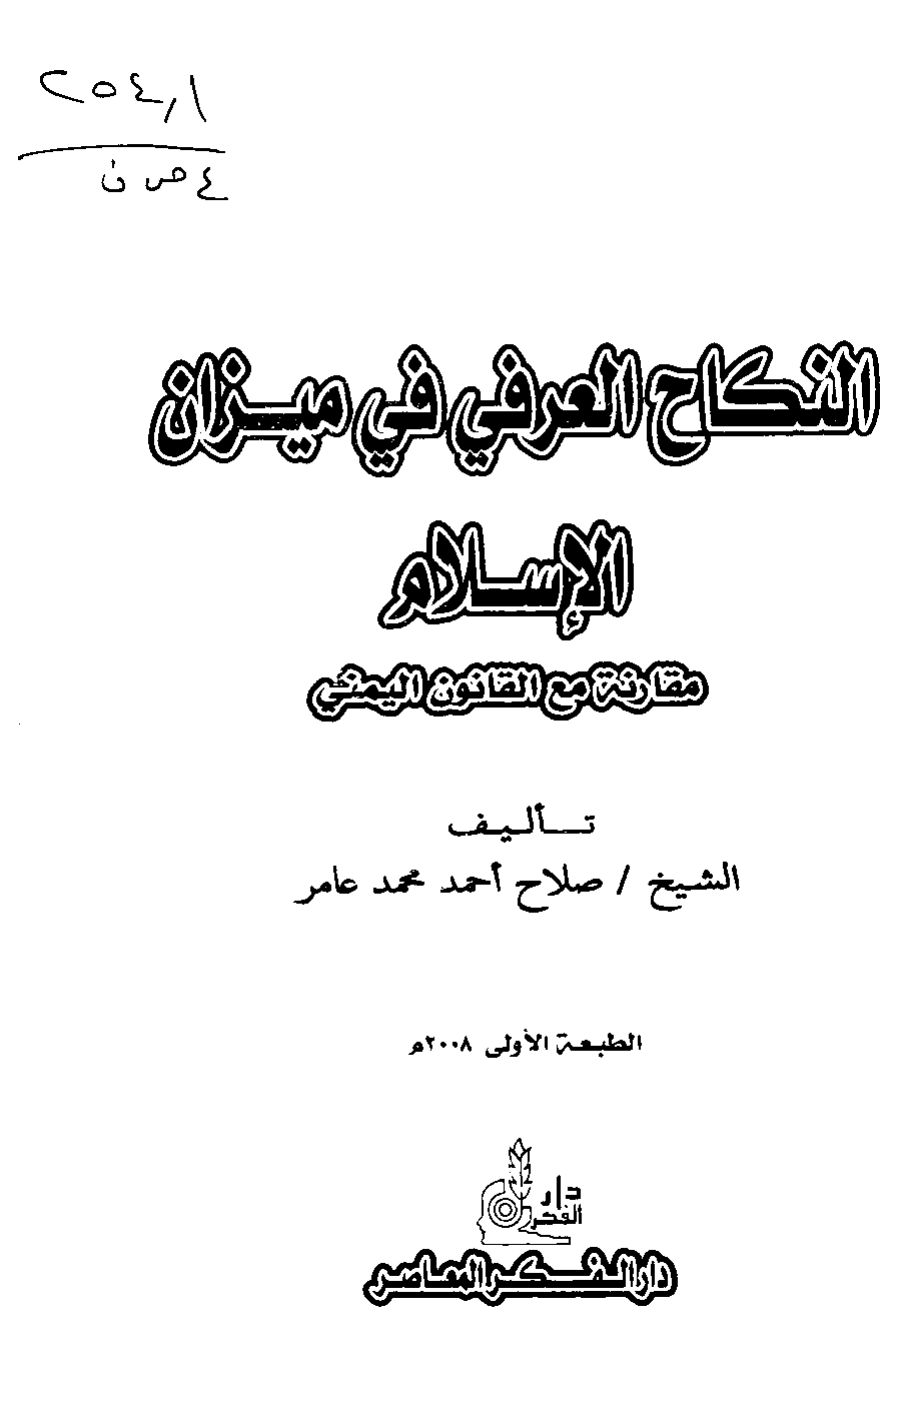 ٢٥٤,١
ع ص ن
النكاح العرفي في ميزان
الإسلام
مقارنة مع القانون اليمني
تأليف
الشيخ / صلاح أحمد محمد عامر
الطبعة الأولى ٢٠٠٨م
دار
الفكر
دار الفكر المعاصر